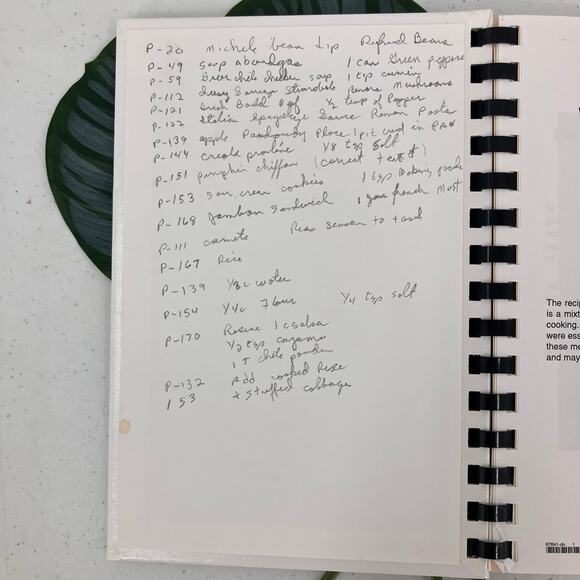 P-20 Michele bean dip Refried Beans
P-49 soup abondgas 1 can Green peppers
P-59 Green chile chicken soup 1 tsp cumin
P-112 Sausage Remove Mushrooms
P-121 Beef ½ teasp of Pepper
P-122 Italian Sauce Ramon Pasta
P-139 apple Place 1 pie crust in pan
P-144 creole praline 1/8 tsp salt
P-151 pumpkin chiffon (correct text)
P-153 sour cream cookies 1 tsp Baking powder
P-168 Jambon Sandwich french Must
P-111 carnets season to tast
P-167 Rice
P-139 water
P-154 ¼c flour ¼ tsp salt
P-170 1 c salsa
½ tsp
1 T chile powder
P-132 Add cooked Rice
153 + Stuffed cabbage
The recip
is a mixt
cooking.
were ess
these me
and may
67641-dt 1